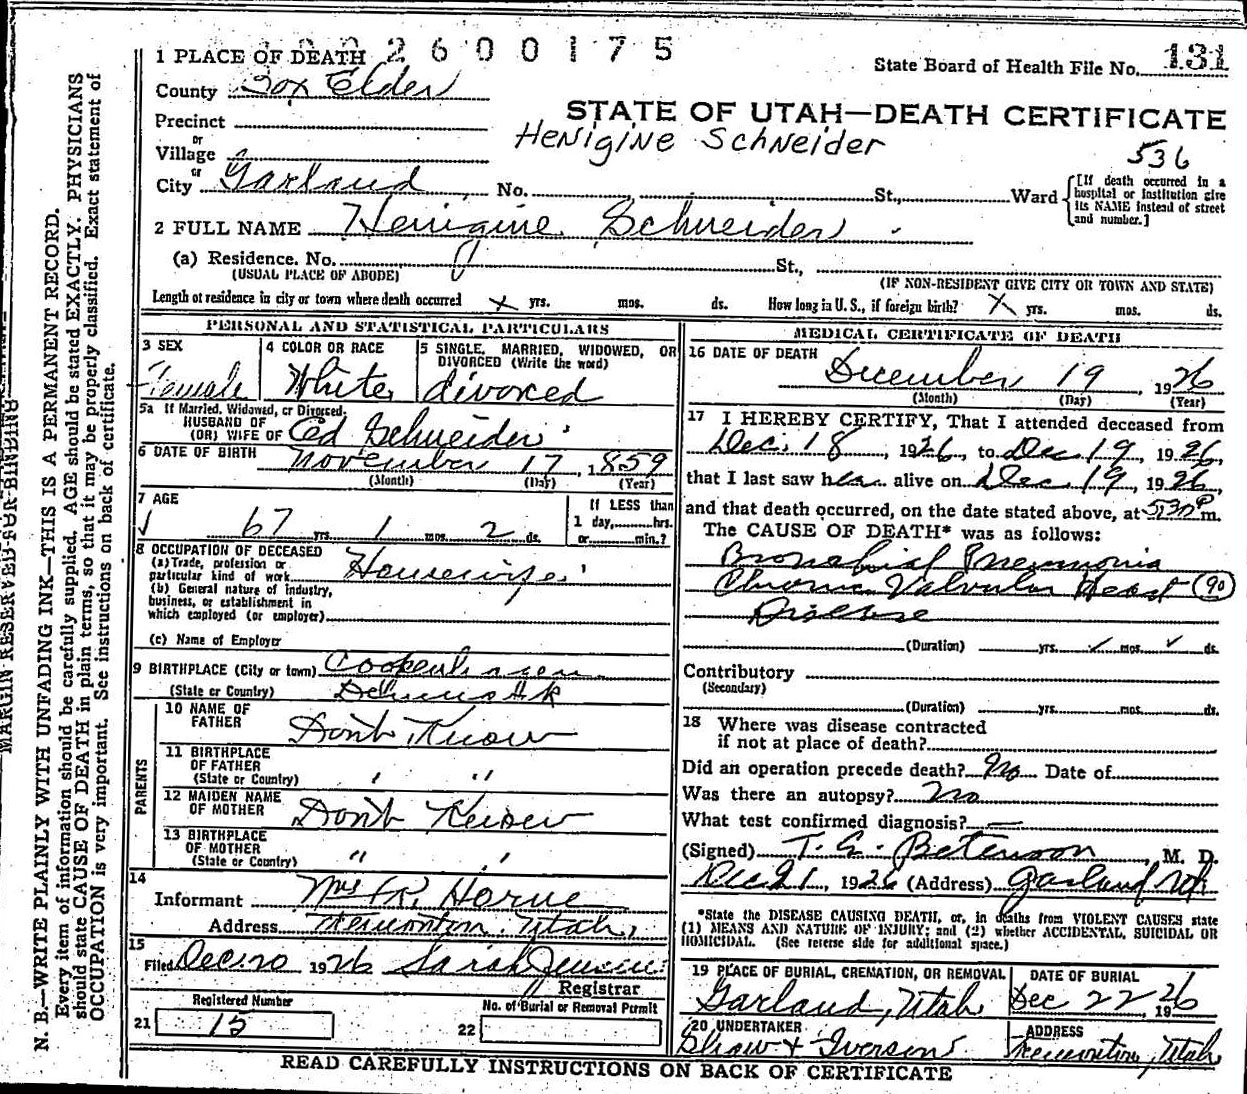 2600175
1 PLACE OF DEATH
State Board of Health File No. 131
County Box Elder
STATE OF UTAH—DEATH CERTIFICATE
Precinct
Henigine Schneider
or
Village
536
or
City Garland No. St., Ward
[If death occurred in a hospital or institution give its NAME instead of street and number.]
2 FULL NAME Henigine Schneider
(a) Residence. No. St.,
(USUAL PLACE OF ABODE) (IF NON-RESIDENT GIVE CITY OR TOWN AND STATE)
Length of residence in city or town where death occurred x yrs. mos. ds. How long in U.S., if foreign birth? x yrs. mos. ds.
PERSONAL AND STATISTICAL PARTICULARS
3 SEX
Female
4 COLOR OR RACE
White
5 SINGLE, MARRIED, WIDOWED, OR DIVORCED (Write the word)
divorced
5a If Married, Widowed, or Divorced,
HUSBAND OF
(OR) WIFE OF Ed Schneider
6 DATE OF BIRTH November 17, 1859
(Month) (Day) (Year)
7 AGE
67 yrs. 1 mos. 2 ds.
If LESS than
1 day,........hrs.
or........min.?
8 OCCUPATION OF DECEASED
(a) Trade, profession or
particular kind of work Housewife
(b) General nature of industry,
business, or establishment in
which employed (or employer)
(c) Name of Employer
9 BIRTHPLACE (City or town)
(State or Country)
PARENTS
10 NAME OF
FATHER Don't Know
11 BIRTHPLACE
OF FATHER
(State or Country) " "
12 MAIDEN NAME
OF MOTHER Don't Know
13 BIRTHPLACE
OF MOTHER
(State or Country) " "
14
Informant Mrs R. Horne
Address Tremonton, Utah,
15
Filed Dec. 20 1926 Sarah Jensen
Registrar
Registered Number
21 15
No. of Burial or Removal Permit
22
MEDICAL CERTIFICATE OF DEATH
16 DATE OF DEATH
December 19, 1926
(Month) (Day) (Year)
17 I HEREBY CERTIFY, That I attended deceased from
Dec. 18, 1926, to Dec 19, 1926,
that I last saw her alive on Dec 19, 1926,
and that death occurred, on the date stated above, at 530 P m.
The CAUSE OF DEATH* was as follows:
Bronchial Pneumonia
Chronic Valvular Heart (90)
Disease
(Duration) yrs. mos. ds.
Contributory
(Secondary)
(Duration) yrs. mos. ds.
18 Where was disease contracted
if not at place of death?
Did an operation precede death? No Date of
Was there an autopsy? No
What test confirmed diagnosis? —
(Signed) T. G. Beterson, M. D.
Dec 21, 1926 (Address) Garland Utah
*State the DISEASE CAUSING DEATH, or, in deaths from VIOLENT CAUSES state
(1) MEANS AND NATURE OF INJURY; and (2) whether ACCIDENTAL, SUICIDAL OR
HOMICIDAL. (See reverse side for additional space.)
19 PLACE OF BURIAL, CREMATION, OR REMOVAL
Garland, Utah
DATE OF BURIAL
Dec 22 1926
20 UNDERTAKER
Shaw & Iverson
ADDRESS
Tremonton, Utah
READ CAREFULLY INSTRUCTIONS ON BACK OF CERTIFICATE
MARGIN RESERVED FOR BINDING
N. B.—WRITE PLAINLY WITH UNFADING INK—THIS IS A PERMANENT RECORD.
Every item of information should be carefully supplied. AGE should be stated EXACTLY. PHYSICIANS
should state CAUSE OF DEATH in plain terms, so that it may be properly classified. Exact statement of
OCCUPATION is very important. See instructions on back of certificate.